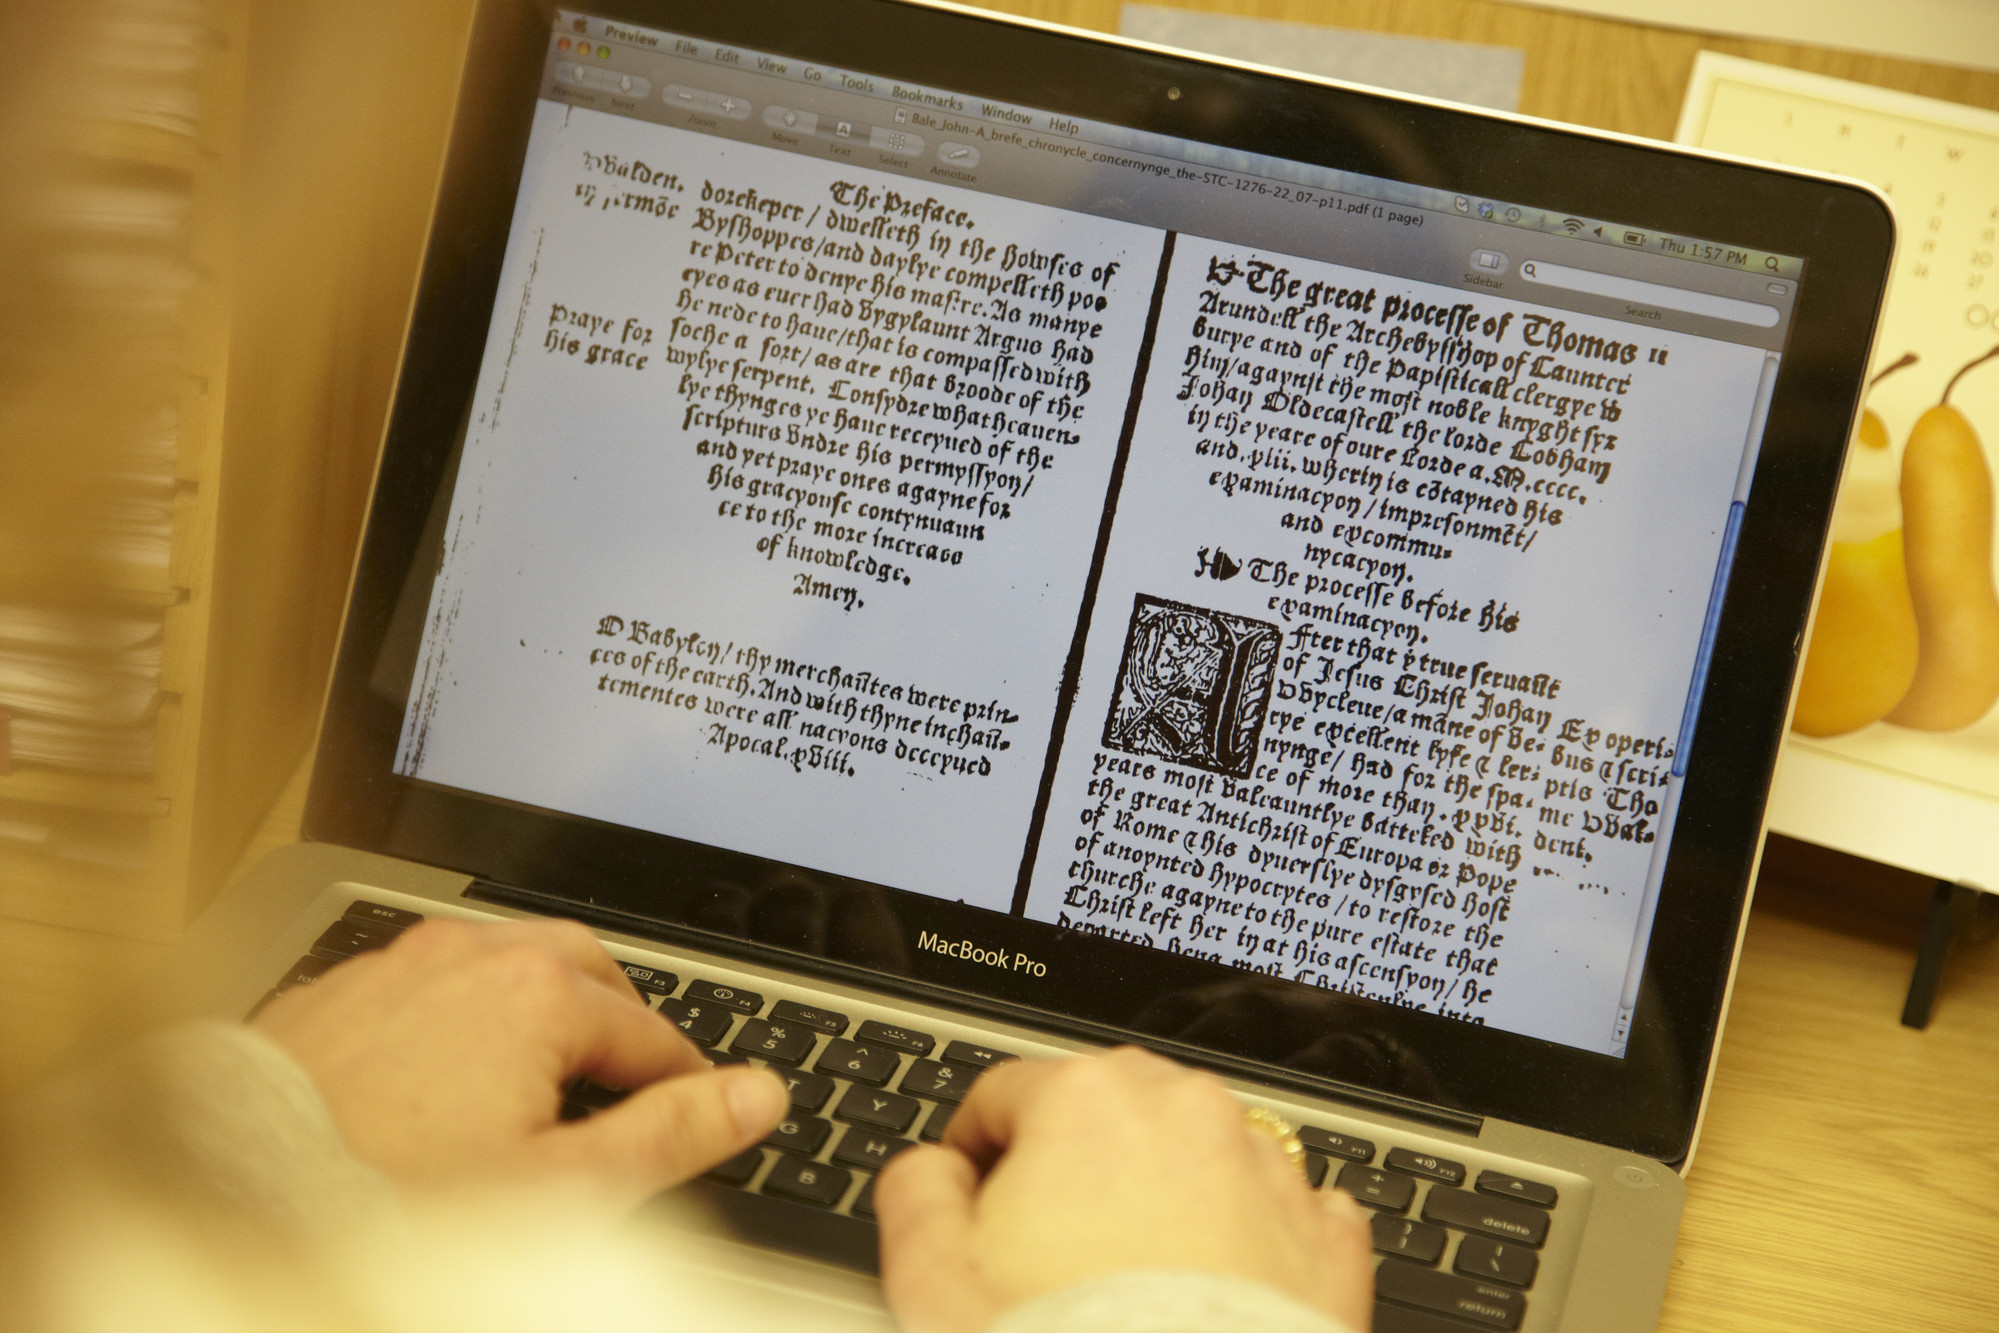 Preview File Edit View Go Tools Bookmarks Window Help
Thu 1:57 PM
Bale_John-A_brefe_chronycle_concernynge_the-STC-1276-22_07-p11.pdf (1 page)
Previous Next Zoom Move Text Select Annotate
Sidebar Search
The Preface.
dorekeper / dwelleth in the howses of
Byshoppes/and daylye compelleth poo
re Peter to denye his mastre. As manye
eyes as euer had Vygylaunt Argus had
he nede to haue/that is compassed with
soche a sort/as are that broode of the
wylye serpent. Consydre what heauen-
lye thynges ye haue receyued of the
scripturs vndre his permyssyon/
and yet praye ones agayne for
his gracyouse contynuaun
ce to the more increase
of knowledge.
Amen.
Praye for
his grace
O Babylon/ thy merchañtes were prin-
ces of the earth. And with thyne inchañ-
tementes were all nacyons deceyued
Apocal. xviii.
The great processe of Thomas
Arundell the Archebysshop of Caunter
burye and of the Papisticall clergye w
him/agaynst the most noble knyght syr
Johan Oldecastell the lorde Cobham
in the yeare of oure Lorde a. M. cccc.
and. xiii. wherin is cõtayned his
examinacyon / impresonmẽt/
and excommu-
nycacyon.
The processe before his
examinacyon.
After that ẏ true seruañt
of Jesus Christ Johan
Wycleue/a mãne of ve-
rye excellent lyfe & ler-
nynge/ had for the spa-
ce of more than. xxvi.
years most valeauntlye batteled with
the great Antichrist of Europa or Pope
of Rome & his dyuerslye dysgysed host
of anoynted hypocrytes / to restore the
churche agayne to the pure estate that
Christ left her in at his ascensyon/ he
departed hens most Christenlye into
Ex operi-
bus & scri-
ptis Tho
me Wal-
dent.
MacBook Pro
esc
F3 F4 F5 F6 F11 F12
$ 4 % 5 ^ 6 & 7 + =
T Y
G H
B
delete
enter
return